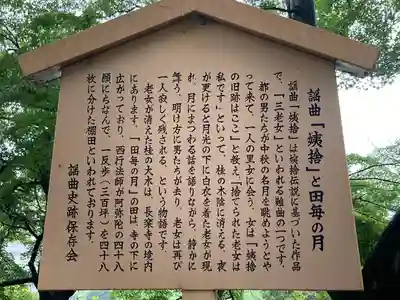 謡曲「姨捨」と田毎の月
謡曲「姨捨」は姨捨伝説に基づいた作品
で、「三老女」といわれる難曲の一つです。
都の男たちが中秋の名月を眺めようとや
って来て、一人の里女に会う。女は「姨捨
の旧跡はここ」と教え、「捨てられた老女は
私です」といって、桂の木陰に消える。夜
が更けると月光の下に白衣を着た老女が現
れ、月にまつわる話を語りながら、静かに
舞う。明け方に男たちが去り、老女は再び
一人寂しく残される、という物語です。
老女が消えた桂の大木は、長楽寺の境内
にあります。「田毎の月」の田は寺の下に
広がっており、西行法師が阿弥陀の四十八
願にちなんで、一反歩(三百坪)を四十八
枚に分けた棚田といわれております。
謡曲史跡保存会